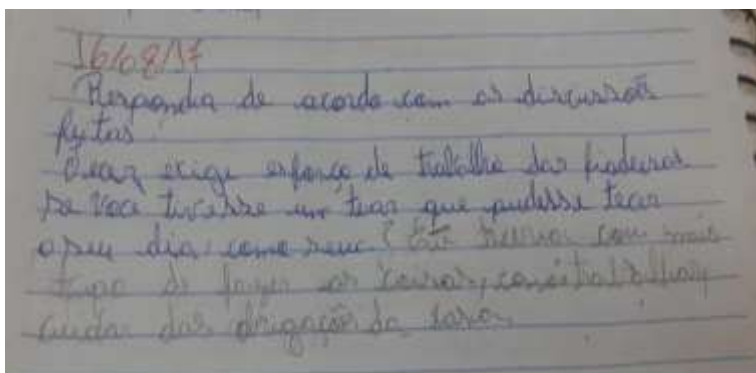 16/08/17
Responda de acordo com as discursões
feytas
O tear, exige esforço de trabalho das fiadeiras
se voce tivesse um tear que pudesse tecer
o seu dia, como seria? com mais
tempo de fazer as coisas, trabalhar,
cuidar das obrigação da casa.